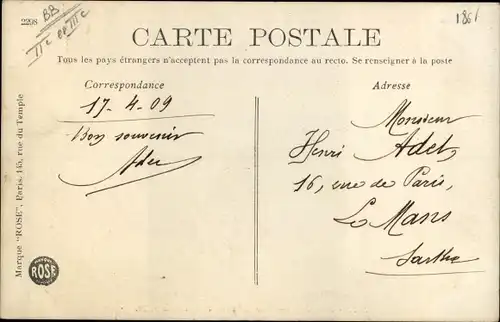 2298
BB
IIe e IIIe
1861
CARTE POSTALE
Tous les pays étrangers n'acceptent pas la correspondance au recto. Se renseigner à la poste
Correspondance
17-4-09
Bon souvenir
Adresse
Monsieur
Henri Adet,
16, rue de Paris,
Le Mans
Sarthe
Marque "ROSE", Paris, 145, rue du Temple
ROSE